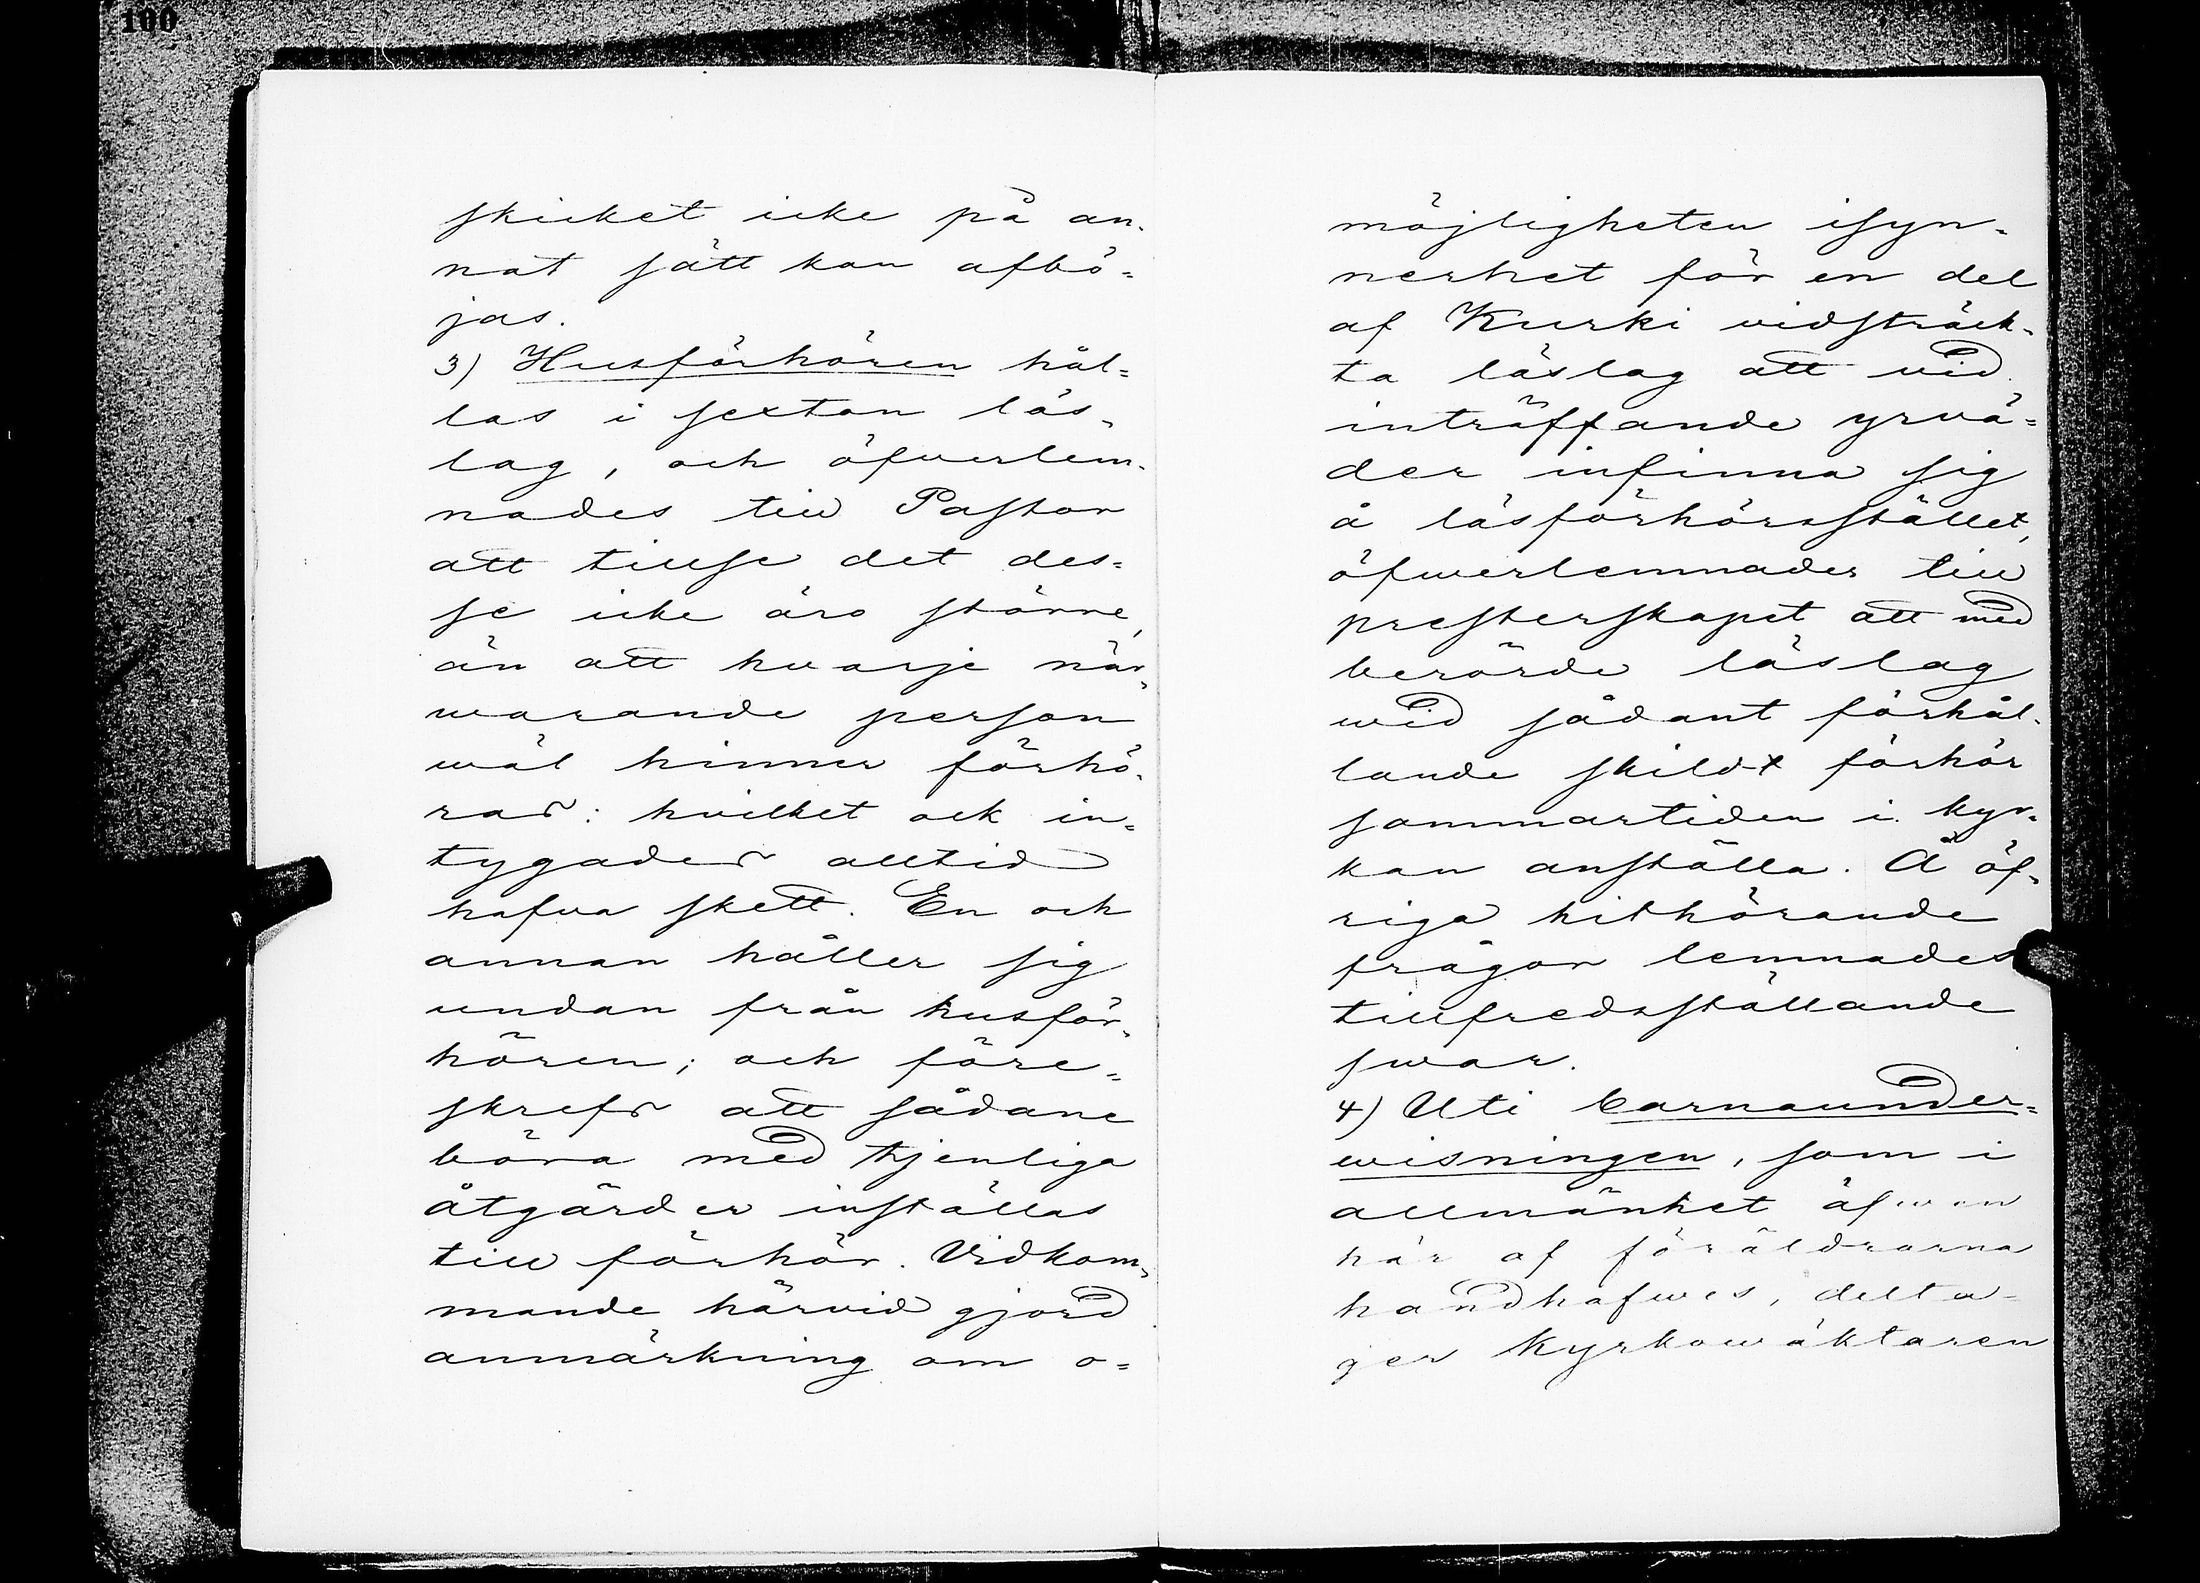 100
skicket icke på an-
nat sätt kan afbö=
jas.
3) Husförhören hål=
las i sexton läs-
lag, och öfverlem-
nades till Pastor
att tillse det des=
se icke äro större,
än att hvarje när-
warande person
wäl hinner förhö-
ras: hvilket ock in=
tygades alltid
hafva skett. En och
annan håller sig
undan från husför-
hören; och före=
skrefs att sådane
böra med tjenliga
åtgärder inställas
till förhör. Vidkom-
mande härvid gjord
anmärkning om o=
möjligheten isyn=
nerhet för en del
af Kurki vidsträck=
ta läslag att vid
inträffande yrvä=
der infinna sig
å läsförhörsstället,
öfwerlemnades till
presterskapet att med
berörde läslag
wid sådant förhål-
lande skildt förhör
sommartiden i kyr-
kan anställa. Å öf-
riga hithörande
frågor lemnades
tillfredsställande
swar.
4) Uti barnaunder=
wisningen, som i
allmänhet äfwen
här af föräldrarna
handhafwes, delta-
ger Kyrkowäktaren